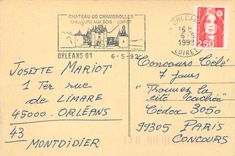 CHATEAU DE CHAMEROLLES
CHILLEURS AUX BOIS - LOIRET
ORLEANS 01 6-5-92
ORLEANS
16
6-5
1992
LOIRET
2,50
JOSETTE MARIOT
1 Ter rue
de LIMARE
45000 - ORLÉANS
43
MONTDIDIER
Concours Télé
7 jours
"Trouvez la
cité cachée"
Cedex 3050
99305 PARIS
CONCOURS